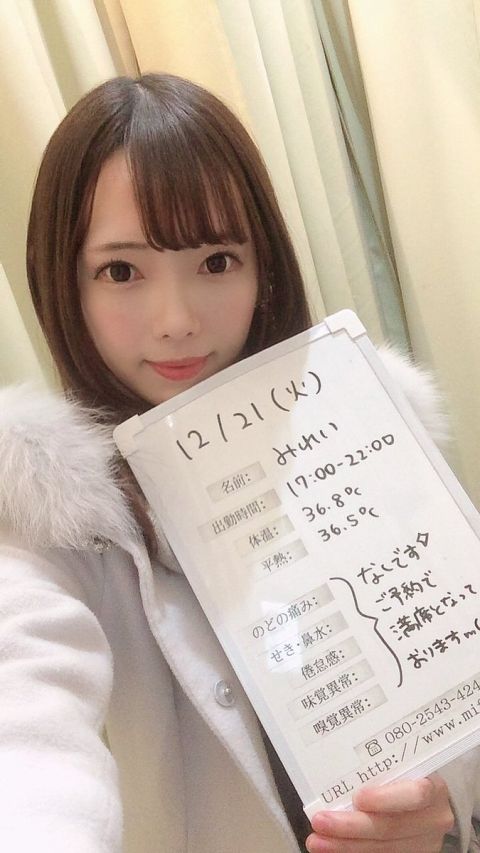 12/21(火)
名前: みれい
出勤時間: 17:00-22:00
体温: 36.8℃
平熱: 36.5℃
のどの痛み:
せき・鼻水:
倦怠感:
味覚異常:
嗅覚異常:
なしです◇
ご予約で
満席となって
おりますm(
☎ 080-2543-424
URL http://www.mi